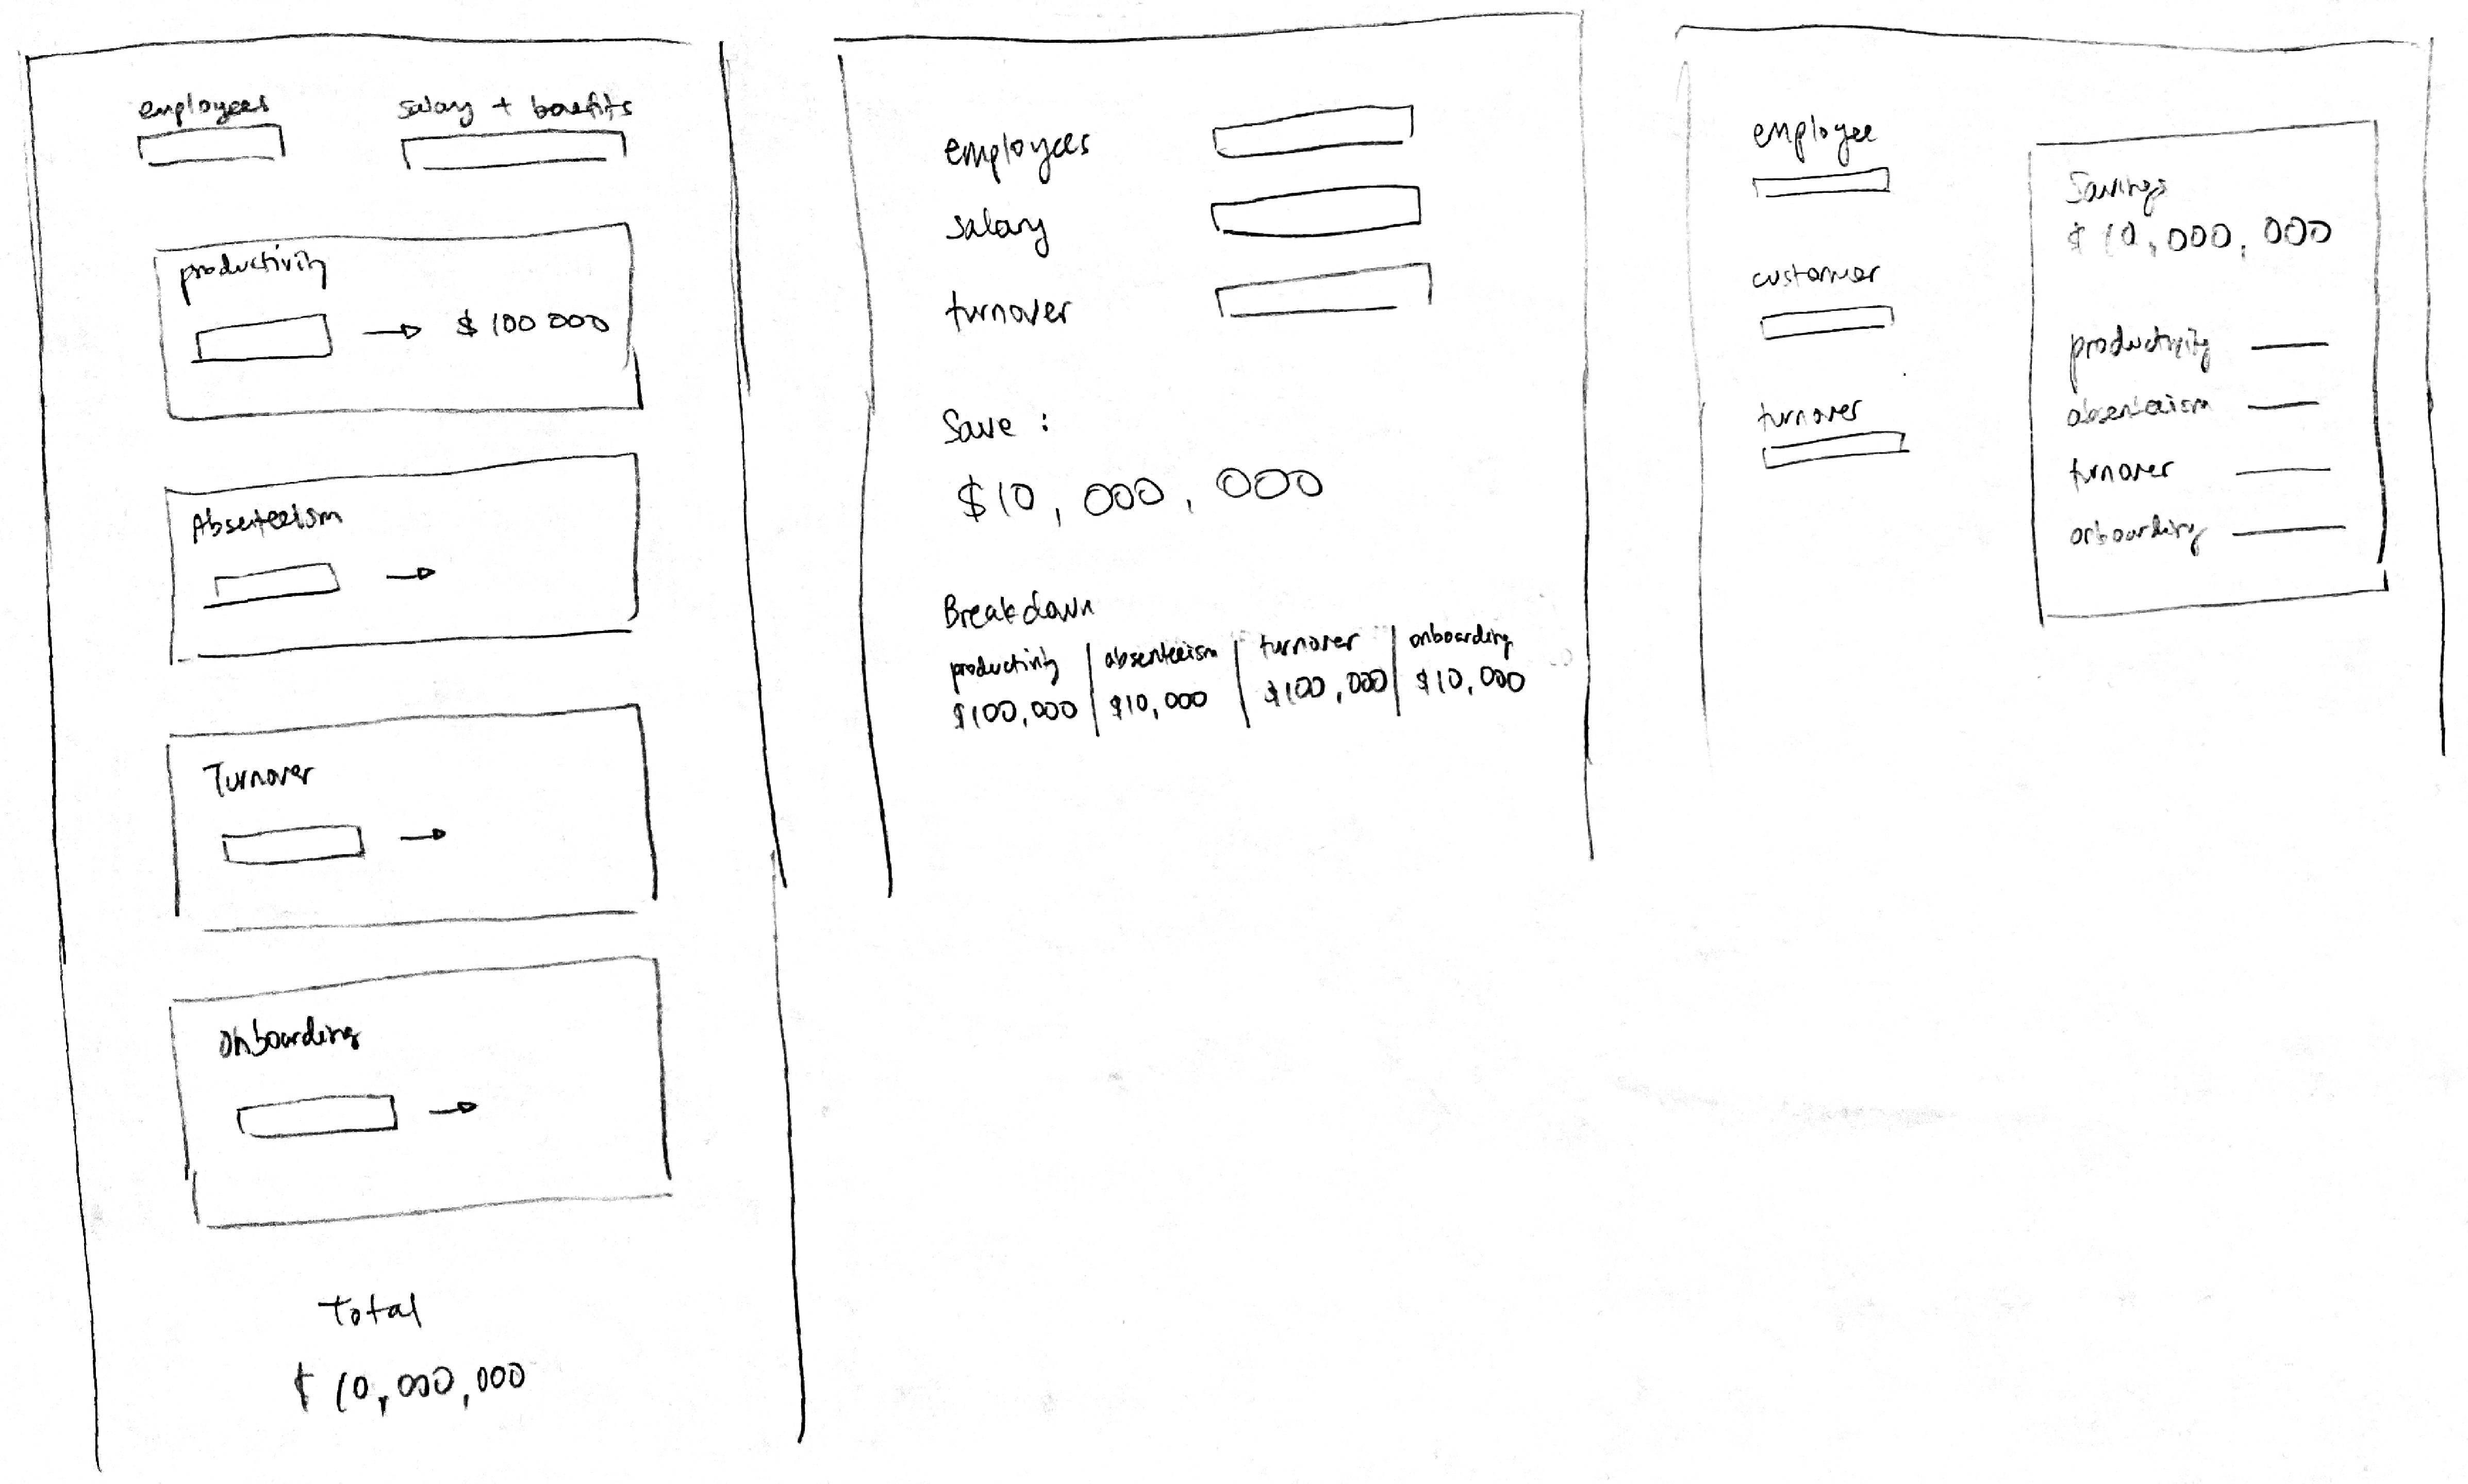 employees
salary + benefits
productivity
$100 000
Absenteeism
Turnover
Onboarding
Total
$10,000,000
employees
salary
turnover
Save :
$10,000,000
Breakdown
productivity
$100,000
absenteeism
$10,000
turnover
$100,000
onboarding
$10,000
employee
customer
turnover
Savings
$10,000,000
productivity
absenteeism
turnover
onboarding